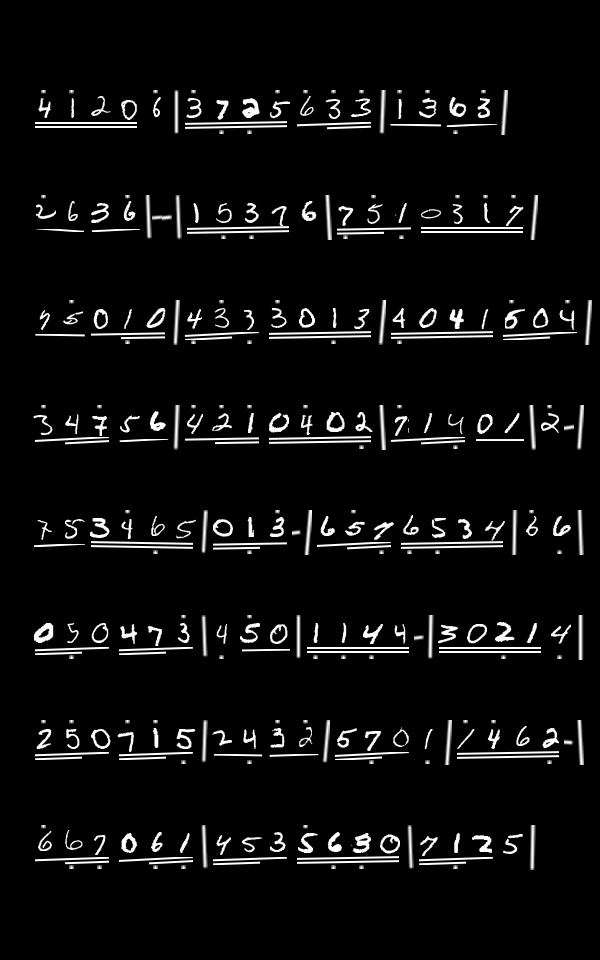 4 1 2 0 6 | 3 7 2 5 6 3 3 | 1 3 6 3 |
2 6 3 6 | - | 1 5 3 7 6 | 7 5 1 0 3 1 7 |
7 5 0 1 0 | 4 3 3 3 0 1 3 | 4 0 4 1 5 0 4 |
3 4 7 5 6 | 4 2 1 0 4 0 2 | 7 1 4 0 1 | 2 - |
7 5 3 4 6 5 | 0 1 3 - | 6 5 7 6 5 3 4 | 6 6 |
0 5 0 4 7 3 | 4 5 0 | 1 1 4 4 - | 3 0 2 1 4 |
2 5 0 7 1 5 | 2 4 3 2 | 5 7 0 1 | 1 4 6 2 - |
6 6 7 0 6 1 | 4 5 3 5 6 3 0 | 7 1 2 5 |